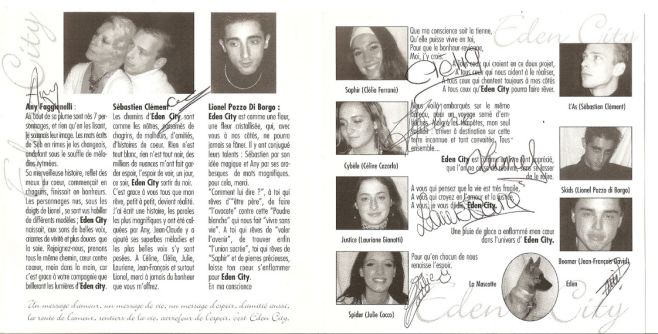 Eden City
Any Faggionelli :
Au bout de sa plume sont nés 7 personnages, et rien qu'en les lisant,
le sommais leur image. Les mots écrits
de Séb en rimes je les changeais,
andantour sous le souffle de mélodies
Sa merveilleuse histoire, reflet des
maux du coeur, commençait en
chagrins, finissait en bonheurs.
Les personnages nus, sous les
doigts de Lionel, se sont vus habiller
de différents modelés ; Eden City
naissait, aux sons de belles voix,
avantes de vérité et plus douces que
la soie. Rejoignez-nous, prenons
tous le même chemin, coeur contre
coeur, main dans la main, car
c'est grâce à votre compagnie que
brilleront les lumières d'Eden city.
Sébastien Clément :
Les chemins d'Eden City sont
comme les nôtres, parsemés de
chagrins, de malheurs, d'amitiés,
d'histoires de coeur. Rien n'est
tout blanc, rien n'est tout noir, des
milliers de nuances m'ont fait garder
espoir, l'espoir de voir, un jour,
ce soir, Eden City sortir du noir.
C'est grâce à vous tous que mon
rêve, petit à petit, devient réalité.
J'ai écrit une histoire, les paroles
les plus magnifiques y ont été calquées
par Any, Jean-Claude y a ajouté
ses superbes mélodies et
les plus belles voix s'y sont
posées. A Céline, Clélia, Julie,
Lauriane, Jean-François et surtout
Lionel, merci à jamais du bonheur
que vous m'offrez.
Lionel Pozzo Di Borgo :
Eden City est comme une fleur,
une fleur cristallisée, qui, avec
vous à nos côtés, ne pourra
jamais se fâner. Il y ont conjugué
leurs talents : Sébastien par son
idée magique et Any par ses arabesques
de mots magnifiques.
pour cela, merci.
"Comment lui dire ?", à toi qui
rêves d'"être père", de faire
l'"avocate" contre cette "Poudre
blanche" qui nous fait "vivre sans
vie". A toi qui rêves de "voler
l'avenir", de trouver enfin
l'"union sacrée", toi qui rêves de
"Saphir" et de pierres précieuses,
laisse ton coeur s'enflammer
pour Eden City.
En ma conscience
Un message d'amour, un message de vie, un message d'espoir, d'amitié aussi,
la route de l'amour, sentiers de la vie, carrefour de l'espoir, c'est Eden City.
Eden City
Que ma conscience soit la tienne,
Qu'elle puisse vivre en toi,
Pour que le bonheur revienne,
Moi, j'y crois.
A tous ceux qui croient en ce doux projet,
A tous ceux qui nous aident à le réaliser,
A tous ceux qui chantent toujours à mes côtés
A tous ceux qu'Eden City pourra faire rêver.
Nous voilà embarqués sur le même
bateau, pour un voyage semé d'embûches.
Malgré les tempêtes, mon seul
souhait : arriver à destination sur cette
terre inconnue et tant convoitée, Tous
ensemble...
Eden City est comme un livre tant apprécié,
que l'on ne cesse de relire, sans se lasser
de le lire.
A vous qui pensez que la vie est très fragile,
A vous qui croyez en l'amour et la justice,
A vous, je vous dédie, Eden City.
Une pluie de glace a enflammé mon cœur
dans l'univers d'Eden City.
Pour qu'en chacun de nous
renaisse l'espoir.
Saphir (Clélia Ferranì)
Cybèle (Céline Cazorla)
Justice (Lauriane Gianotti)
Spider (Julie Cocco)
L'As (Sébastien Clément)
Skids (Lionel Pozzo di Borgo)
Boomer (Jean-François Gaviol)
La Mascotte
Eden
Eden City